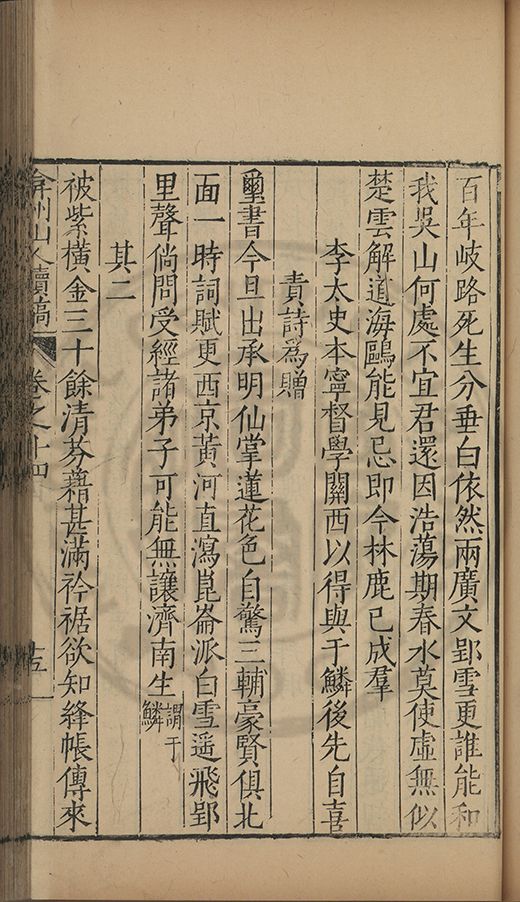 百年岐路死生分垂白依然兩廣文郢雪更誰能和
我吳山何處不宜君還因浩蕩期春水莫使虛無似
楚雲解道海鷗能見忌即今林鹿已成羣
李太史本寧督學關西以得與于鱗後先自喜
責詩爲贈
璽書今旦出承明仙掌蓮花色自驚三輔豪賢俱北
面一時詞賦更西京黃河直瀉崑崙派白雪遥飛郢
里聲倘問受經諸弟子可能無讓濟南生謂于鱗
其二
被紫橫金三十餘清芬藉甚滿衿裾欲知絳帳傳來
弇州山人續稿 卷之十四 十五